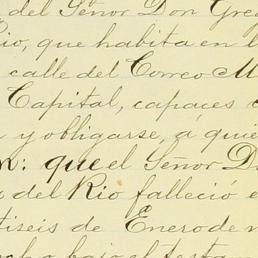 del Señor Don Greg
Rio, que habita en l
calle del Correo M
Capital, capaces
y obligarse, á quie
que el Señor D
del Rio falleció e
tiseis de Enero de
cho bajo el testam